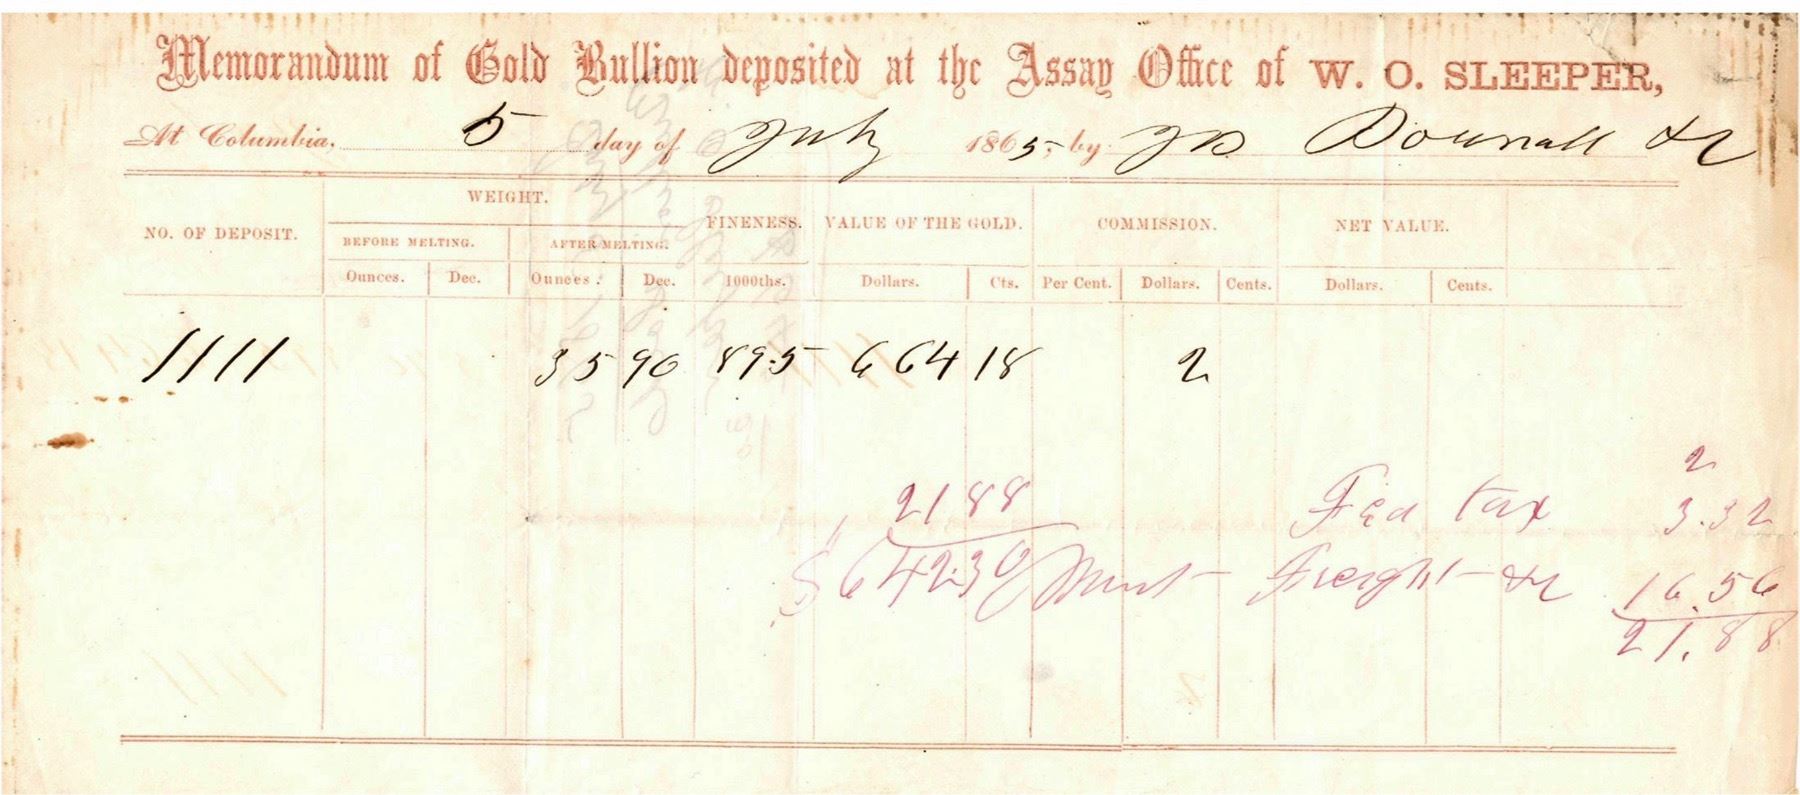 Memorandum of Gold Bullion deposited at the Assay Office of W. O. SLEEPER,
At Columbia, 5 day of July 1865, by
NO. OF DEPOSIT. WEIGHT. FINENESS. VALUE OF THE GOLD. COMMISSION. NET VALUE.
BEFORE MELTING. AFTER MELTING.
Ounces. Dec. Ounces. Dec. 1000ths. Dollars. Cts. Per Cent. Dollars. Cents. Dollars. Cents.
1111 35 90 895 664 18 2
2
21.88 Fed tax 3.32
$642.30 Mint Freight &c 16.56
21.88